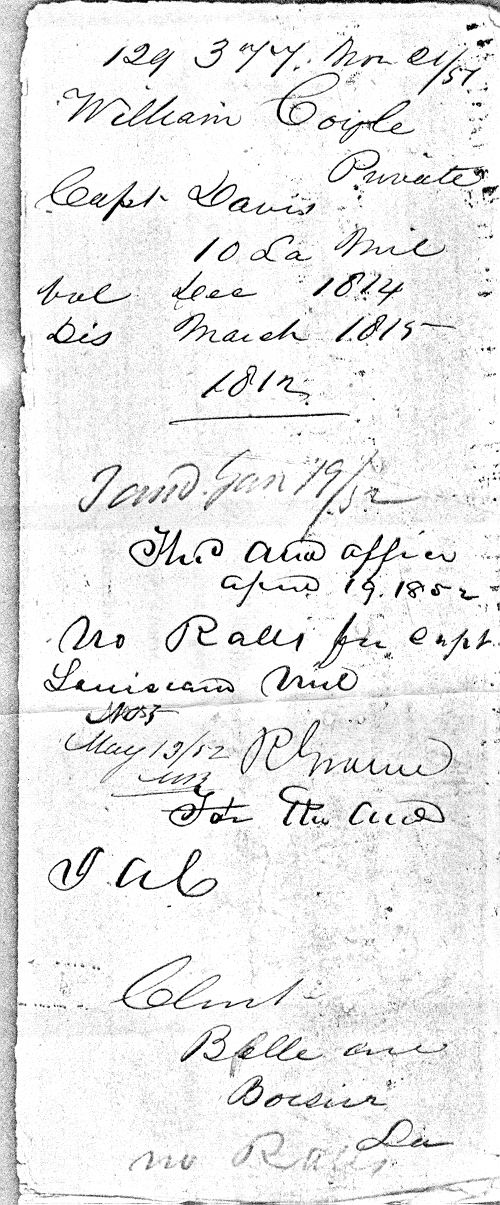 129 377. Nov 21/51
William Coyle
Private
Capt Davis
10 La Mil
vol Dec 1814
Dis March 1815
1812
Jan 19/52
Thrd Aud office
april 19. 1852
No Rolls for Capt
Louisiana Mil
May 13/52
For Thr Aud
Clmt
Belle
Bossier
La
no Rolls